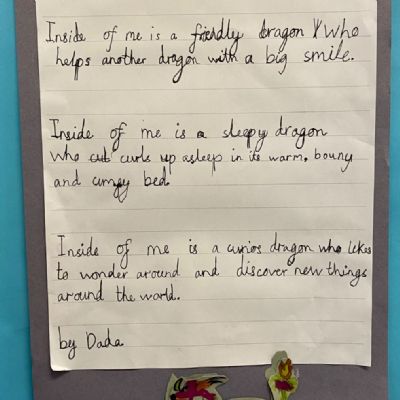 Inside of me is a friendly dragon who
helps another dragon with a big smile.
Inside of me is a sleepy dragon
who curls up asleep in its warm, bouny
and bed.
Inside of me is a curios dragon who likes
to wonder around and discover new things
around the world.
by Dada